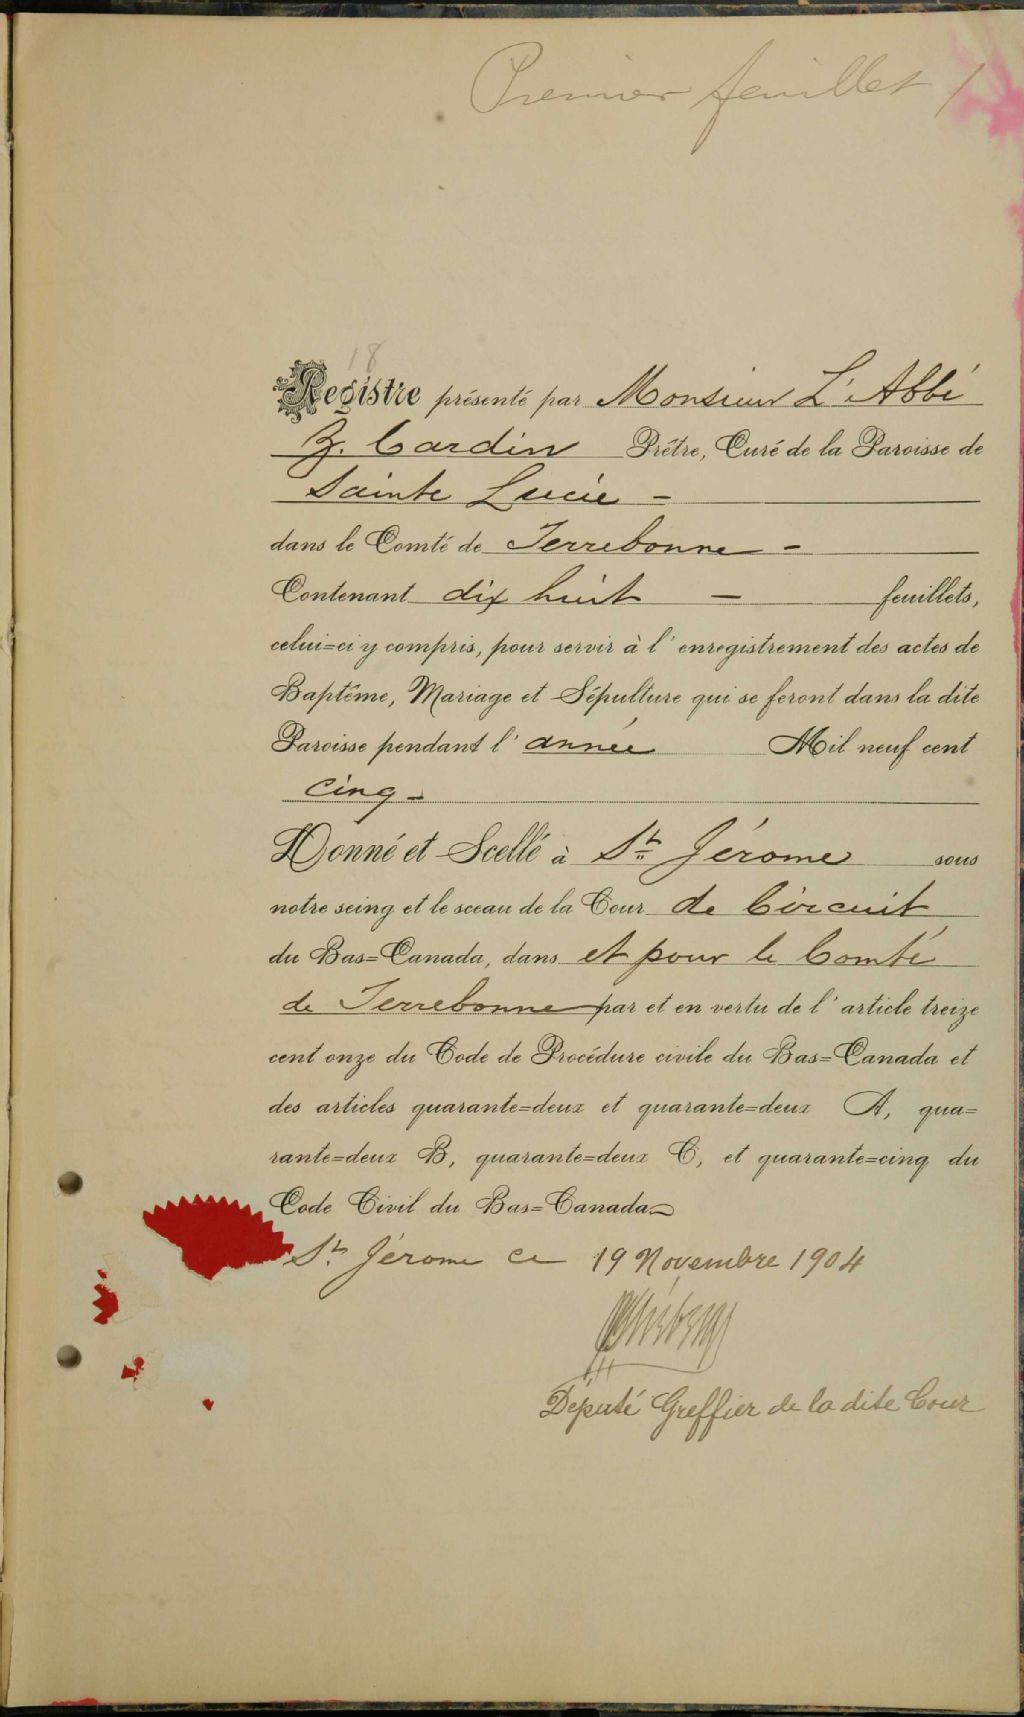 Premier feuillet 1
18
Registre présenté par Monsieur L'Abbé
Z. Cardin Prêtre, Curé de la Paroisse de
Sainte Lucie -
dans le Comté de Terrebonne -
Contenant dix huit - feuillets,
celui=ci y compris, pour servir à l'enregistrement des actes de
Baptême, Mariage et Sépulture qui se feront dans la dite
Paroisse pendant l'année Mil neuf cent
cinq -
Donné et Scellé à St Jérome sous
notre seing et le sceau de la Cour de Circuit
du Bas=Canada, dans et pour le Comté
de Terrebonne par et en vertu de l'article treize
cent onze du Code de Procédure civile du Bas=Canada et
des articles quarante=deux et quarante=deux A, qua=
rante=deux B, quarante=deux C, et quarante=cinq du
Code Civil du Bas=Canada
St. Jérome ce 19 Novembre 1904
Député Greffier de la dite Cour